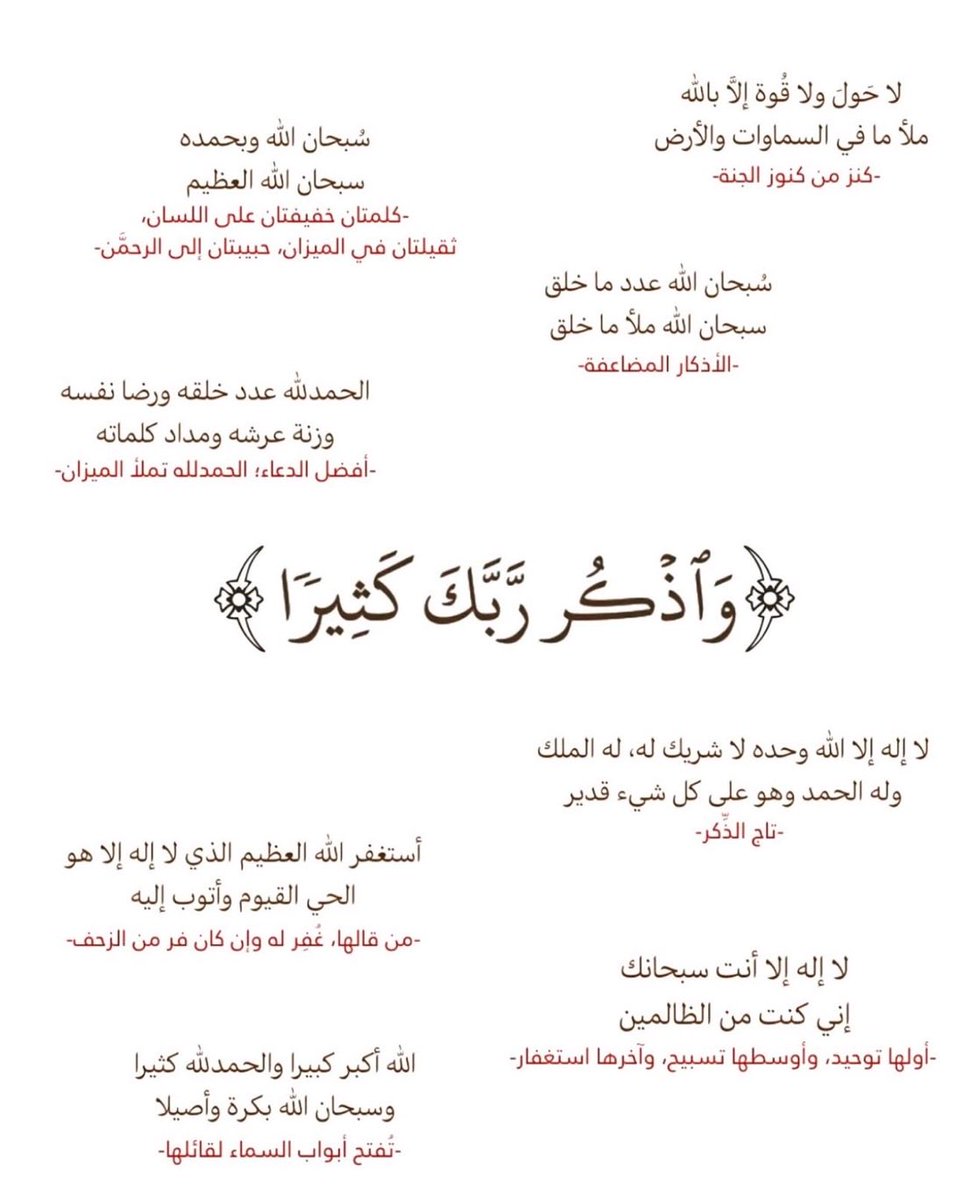 لا حَولَ ولا قُوة إلاَّ بالله
ملأ ما في السماوات والأرض
-كنز من كنوز الجنة-
سُبحان الله وبحمده
سبحان الله العظيم
-كلمتان خفيفتان على اللسان،
ثقيلتان في الميزان، حبيبتان إلى الرحمَّن-
سُبحان الله عدد ما خلق
سبحان الله ملأ ما خلق
-الأذكار المضاعفة-
الحمدلله عدد خلقه ورضا نفسه
وزنة عرشه ومداد كلماته
-أفضل الدعاء؛ الحمدلله تملأ الميزان-
﴿وَٱذْكُر رَّبَّكَ كَثِيرَۭا﴾
لا إله إلا الله وحده لا شريك له، له الملك
وله الحمد وهو على كل شيء قدير
-تاج الذِّكر-
أستغفر الله العظيم الذي لا إله إلا هو
الحي القيوم وأتوب إليه
-من قالها، غُفِر له وإن كان فر من الزحف-
لا إله إلا أنت سبحانك
إني كنت من الظالمين
-أولها توحيد، وأوسطها تسبيح، وآخرها استغفار-
الله أكبر كبيرا والحمدلله كثيرا
وسبحان الله بكرة وأصيلا
-تُفتح أبواب السماء لقائلها-